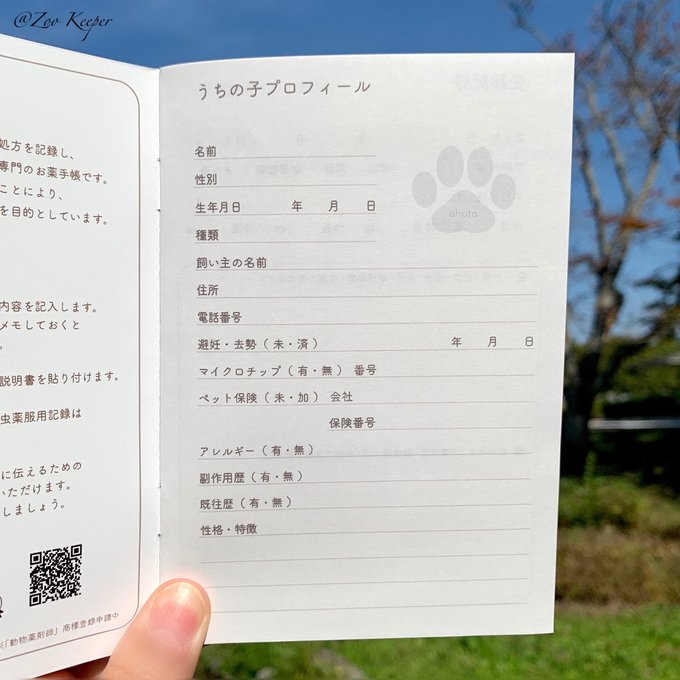 @Zoo Keeper
処方を記録し、
専門のお薬手帳です。
ことにより、
を目的としています。
内容を記入します。
メモしておくと
。
説明書を貼り付けます。
虫薬服用記録は
に伝えるための
いただけます。
しましょう。
「動物薬剤師」商標登録申請中
うちの子プロフィール
名前
性別
生年月日 年 月 日
種類
photo
飼い主の名前
住所
電話番号
避妊・去勢（未・済） 年 月 日
マイクロチップ（有・無） 番号
ペット保険（未・加） 会社
保険番号
アレルギー（有・無）
副作用歴（有・無）
既往歴（有・無）
性格・特徴